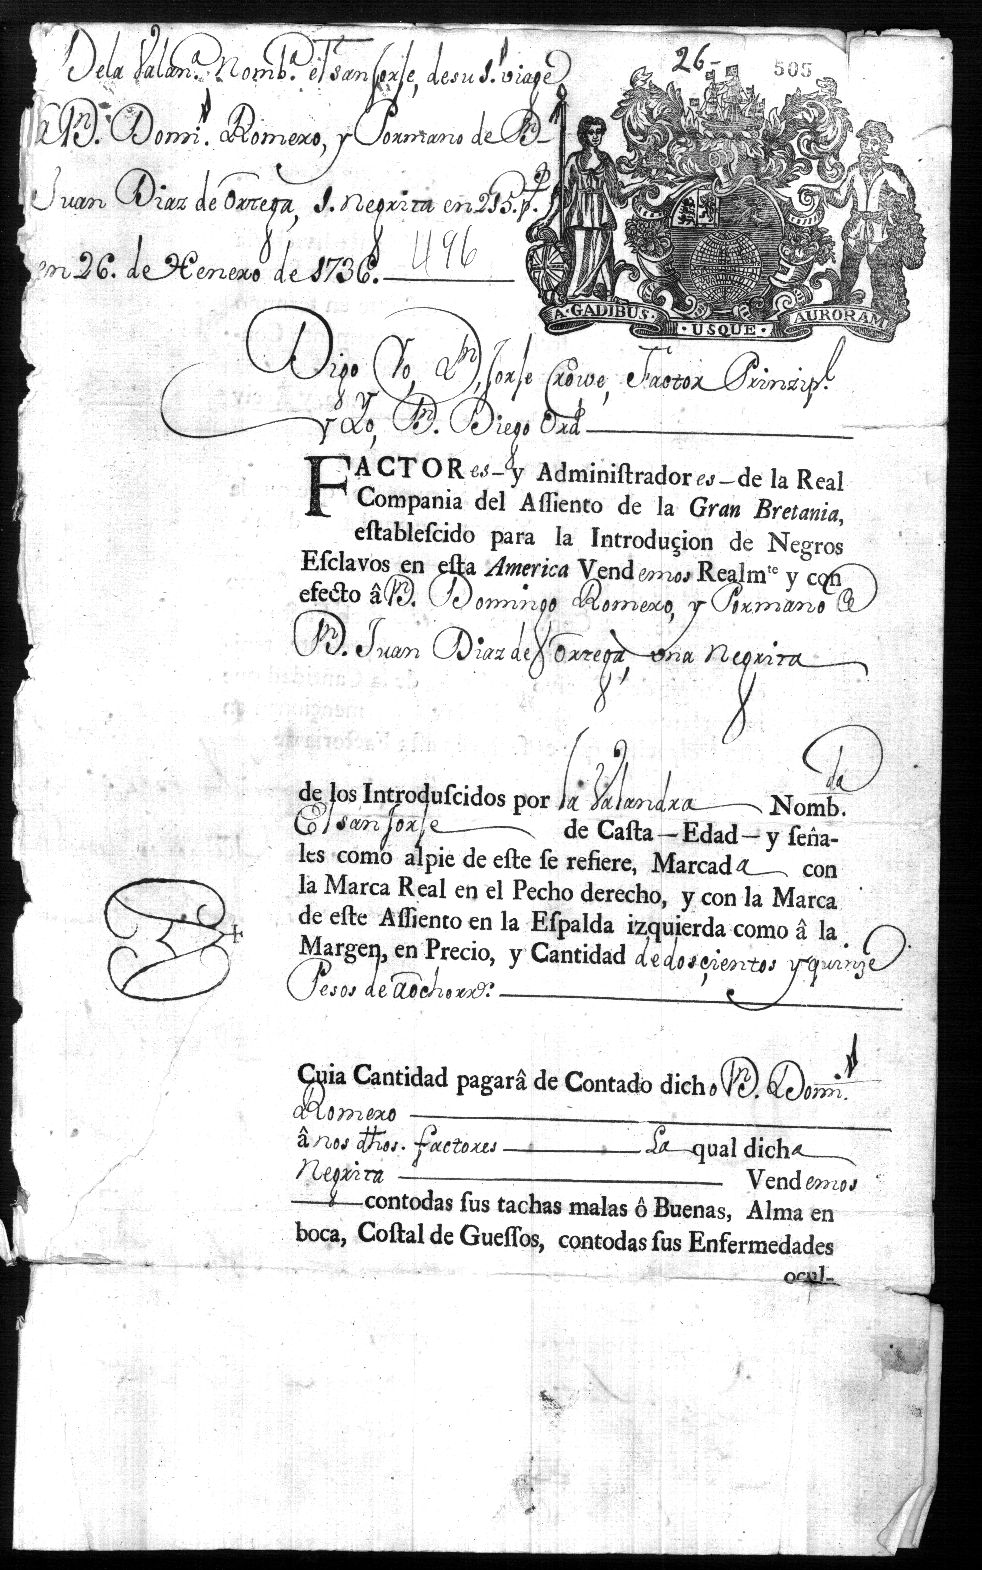 26-
505
Dela Valan.ª Nomb.ª el San Jorje, de su 1.º viage
â Dn. Domi.º Romero, y Pormano de Dn
Juan Diaz de Ortega, 1. negrita en 215. ps.
en 26. de Henero de 1736.
496
A·GADIBUS· ·USQUE· AURORAM
Digo Yo, Dn, Jorje Crowe, Factor Prinzip.l
y Yo, Dn. Diego Ord
FACTORes-y Adminiſtradores-de la Real
Compania del Aſſiento de la Gran Bretania,
eſtableſcido para la Introduçion de Negros
Eſclavos en eſta America Vendemos Realmte y con
efecto â Dn. Domingo Romero, y Pormano de
Dn. Juan Diaz de Ortega, una negrita
de los Introduſcidos por la Valandra Nomb.da
El San Jorje de Caſta-Edad-y ſeña-
les como alpie de eſte ſe refiere, Marcada con
la Marca Real en el Pecho derecho, y con la Marca
de eſte Aſſiento en la Eſpalda izquierda como â la
Margen, en Precio, y Cantidad de dosçientos y quinze
Pesos de âocho rrs.
Cuia Cantidad pagarâ de Contado dicho Dn. Domi.º
Romero
â nos dhos. factores La qual dicha
Negrita Vendemos
contodas ſus tachas malas ô Buenas, Alma en
boca, Coſtal de Gueſſos, contodas ſus Enfermedades
ocul-